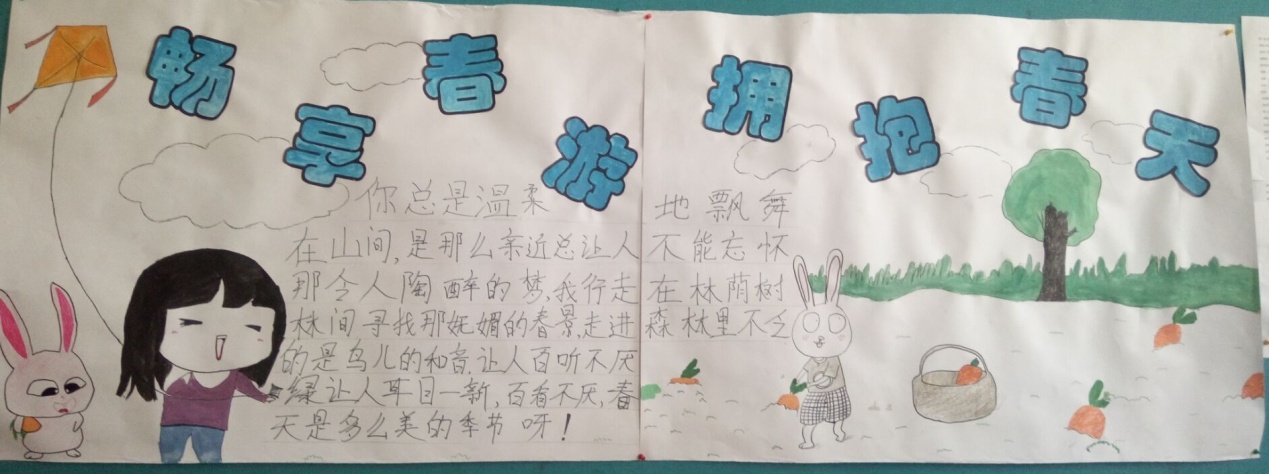 畅享春游
拥抱春天
你总是温柔地飘舞
在山间,是那么亲近总让人不能忘怀
那令人陶醉的梦,我行走在林荫树
林间寻找那妩媚的春景,走进森林里不乏
的是鸟儿的和音,让人百听不厌
绿让人耳目一新,百看不厌,春
天是多么美的季节呀!